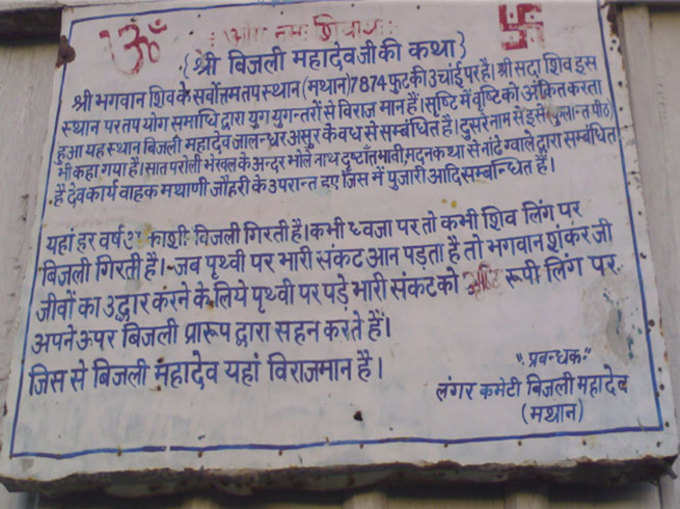 ॐ ओम नमः शिवायः
{श्री बिजली महादेव जी की कथा}
श्री भगवान शिव के सर्वोत्तम तप स्थान (मथान) 7874 फुट की उचांई पर है। श्री सदा शिव इस
स्थान पर तप योग समाधि द्वारा युग युगन्तरों से विराज मान हैं। सृष्टि में वृष्टि को अंकित करता
हुआ यह स्थान बिजली महादेव जालन्धर असुर के वध से सम्बंधित है। दुसरे नाम से इसे (कुलान्त पीठ)
भी कहा गया है। सात परोली भेखल के अन्दर भोले नाथ दृष्टाँत भावी, मदन कथा से नांढे ग्वाले द्वारा सम्बंधित
है देव कार्य वाहक मथाणी जौहरी के उपरान्त हुए जिस में पुजारी आदि सम्बन्धित हैं।
यहां हर वर्ष काशी बिजली गिरती है। कभी ध्वजा पर तो कभी शिव लिंग पर
बिजली गिरती है। जब पृथ्वी पर भारी संकट आन पड़ता है तो भगवान शंकर जी
जीवों का उद्धार करने के लिये पृथ्वी पर पड़े भारी संकट को रूपी लिंग पर
अपने ऊपर बिजली प्रारूप द्वारा सहन करते हैं।
जिस से बिजली महादेव यहां विराजमान है।
"प्रबन्धक"
लंगर कमेटी बिजली महादेव
(मथान)